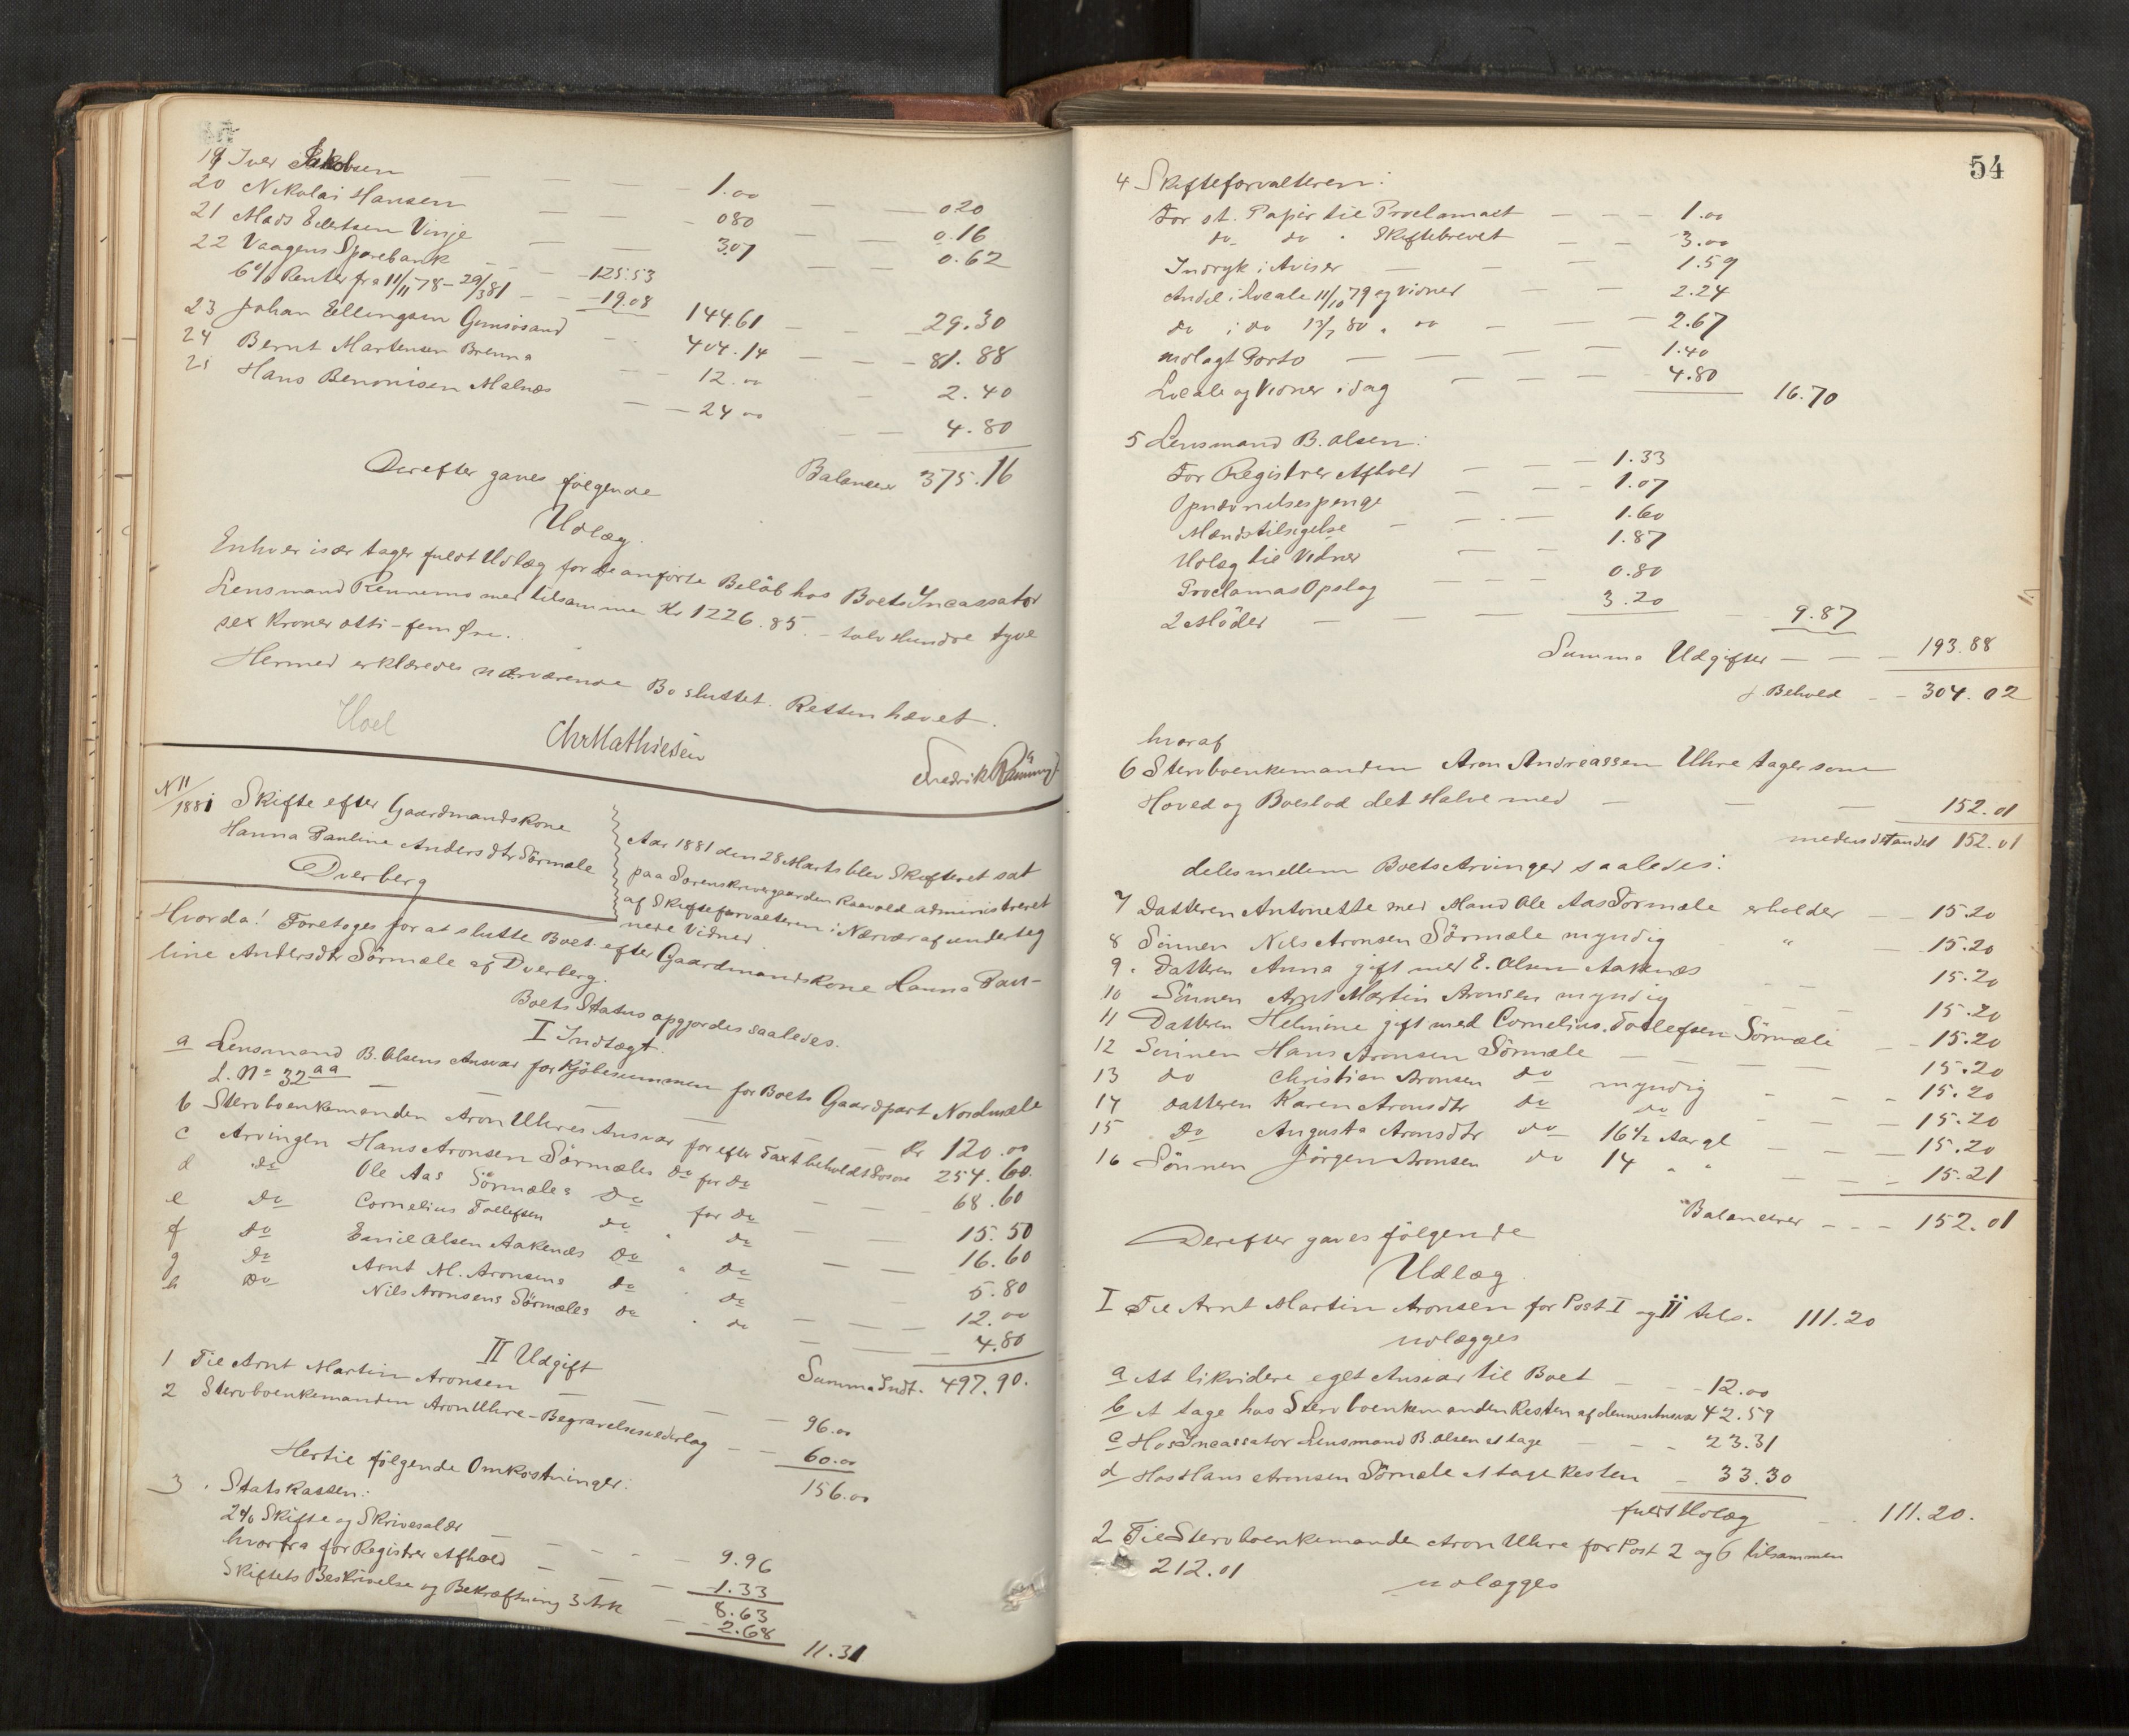 19 Iver Jakobsen — — — 1.00 — — 020
20 Nikolai Hansen — — — 080 — — 0.16
21 Mads Edertsen Vinje — — 3.07 — — 0.62
22 Vaagens Sparebank — — 125.53
6% Renter fra 11/11 78 – 29/3 81 — — 19.08 144.61 — — 29.30
23 Johan Ellingsen Gimsøsand — 404.14 — — 81.88
24 Bernt Martensen Brenna — — 12.00 — 2.40
25 Hans Benonisen Malnæs — — 24 00 — — 4.80
Balancerer 375.16
Derefter gaves følgende
Udlæg.
Enhver især tager fuldt Udlæg for de anførte Beløb hos Boets Incassator
Lensmand Rennemo med tilsammen Kr 1226.85. – tolv Hundre tyve
sex Kroner otti-fem Øre.
Hermed erklæredes nærværende Bo sluttet. Retten hævet.
Hoel
Chr Mathiesen
Fredrik
N 11/1881 Skifte efter Gaardmandskone
Hanna Pauline Andersdtr Sörmæle
Dverberg
Aar 1881 den 28 Marts blev Skifteret sat
paa Sorenskrivergaarden Raavold administreret
af Skifteforvalteren i Nærvær af underteg
nede Vidner.
Hvorda! Foretoges for at slutte Boet efter Gaardmandskone Hanna Pau-
line Andersdtr Sörmæle af Dverberg.
Boets Status opgjordes saaledes.
I Indtægt.
a Lensmand B. Olsens Ansvar for Kjöbesummen for Boets Gaardpart Nordmæle
L. No 32 aa — — — — Kr 120.00
b Stervboenkemanden Aron Uhres Ansvar for efter Taxt beholdt Losore 254.60.
c Arvingen Hans Aronsen Sörmæles do for do — — — 68.60
d do Ole Aas Sörmæles do for do — — 15.50
e do Cornelius Tollefsen do " do — — 16.60
f do Emil Olsen Aakenæs do " do — 5.80
g do Arnt M. Aronsens do " do — — — 12.00
h do Nils Aronsens Sörmæles do " do — — 4.80
Summa Indt. 497.90.
II Udgift
1 Til Arnt Martin Aronsen — — — — 96.00
2 Stervboenkemanden Aron Uhre – Begravelsesvederlag — — 60.00
156.00
Hertil følgende Omkostninger:
3. Statskassen:
2% Skifte og Skriversalær — — — — 9.96
hvorfra for Registrer Afhold — — — 1.33
8.63
Skiftets Beskrivelse og Bekræftning 3 Ark — — 2.68 11.31
54
4 Skifteforvalteren:
For st. Papir til Proclamaet — — — 1.00
do do " Skiftebrevet — — 3.00
Indryk i Aviser — — — 1.59
Andel i Locale 11/10 79 og Vidner — — 2.24
do i do 13/7 80 " do — — — 2.67
udlagt Porto — — — — 1.40
Locale og Vidner idag — — — — 4.80 16.70
5 Lensmand B. Olsen:
For Registrer Afhold — — — 1.33
Opnævnelsespenge — — — 1.07
Mændstilsigelse — — — 1.60
Udlæg til Vidner — — 1.87
Proclamas Opslag — — — 0.80
2 Möder — — — 3.20 — 9.87
Summa Udgifter — — — 193.88
I Behold — — 304.02
hvoraf
6 Stervboenkemanden Aron Andreassen Uhre tager som
Hoved og Boeslod det Halve med — — — 152.01
medens det andet 152.01
deles mellem Boets Arvinger saaledes:
7 Datteren Antonette med Mand Ole Aas Sörmæle erholder — — 15.20
8 Sönnen Nils Aronsen Sörmæle myndig " — 15.20
9. Datteren Anna gift med E. Olsen Aakenæs — — 15.20
10 Sönnen Arnt Martin Aronsen myndig — — 15.20
11 Datteren Helmine gift med Cornelius Tollefsen Sörmæle — — 15.20
12 Sönnen Hans Aronsen Sörmæle — — — — 15.20
13 do Christian Aronsen do myndig — — — 15.20
14 Datteren Karen Aronsdtr do do — — 15.20
15 do Augusta Aronsdtr do 16½ Aar gl — — — 15.20
16 Sönnen Jörgen Aronsen do 14 " " — — — 15.21
Balancerer — — — 152.01
Derefter gaves følgende
Udlæg.
I Til Arnt Martin Aronsen for Post I og II tils. 111.20
udlægges
a At likvidere eget Ansvar til Boet — — 12.00
b At tage hos Stervboenkemanden Resten af dennes Ansvar 42.59
c Hos Incassator Lensmand B. Olsen at tage — — 23.31
d Hos Hans Aronsen Sörmæle at tage Resten — 33.30
fuldt Udlæg — 111.20.
2 Til Stervboenkemanden Aron Uhre for Post 2 og 6 tilsammen
212.01 udlægges